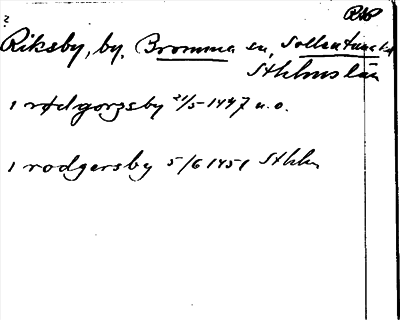 ?
Riksby, by, Bromma sn, Sollentuna hd
Sthlms län
1 rødgorzsby 21/5 1447 u. o.
1 rodgersby 5/6 1451 Sthlm